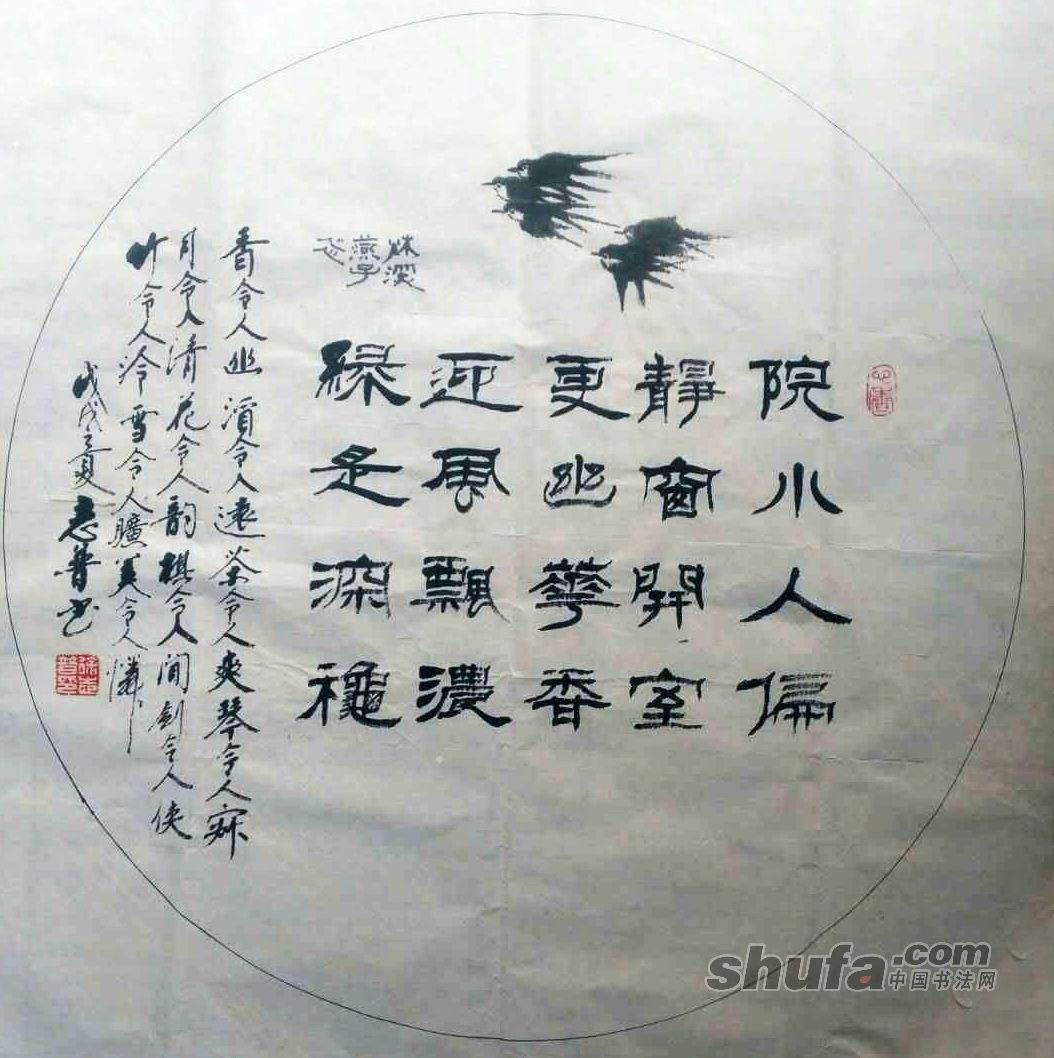 院小人偏
靜窗開室
更幽華香
迎風飄濃
緑是深穐
林溪
燕子
香令人幽酒令人遠茶令人爽琴令人寂
月令人清花令人韵棋令人閒劍令人俠
竹令人冷雪令人曠美令人憐
戊戌之夏志普书
徐志普印
shufa.com
中国书法网